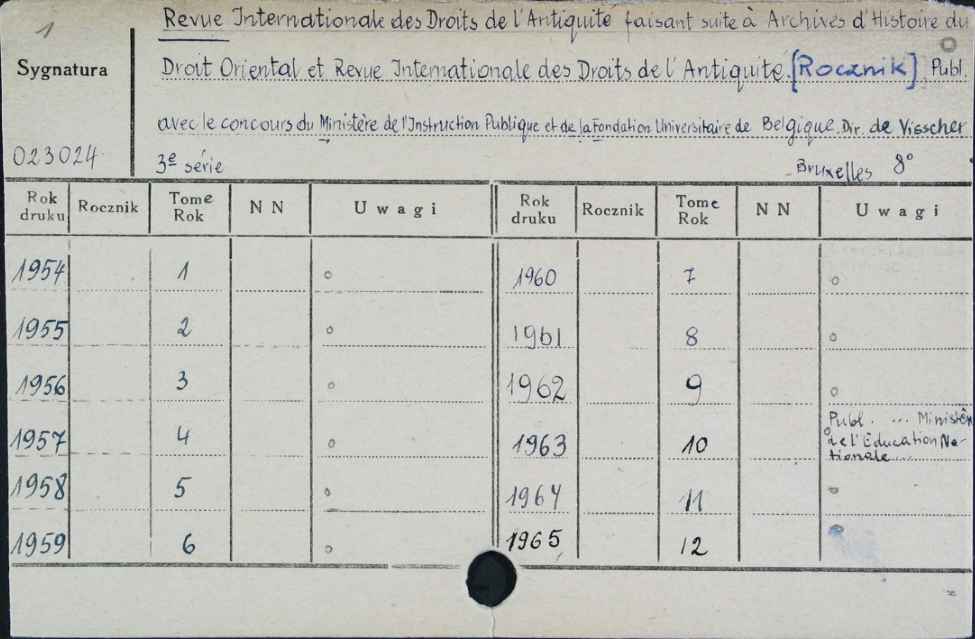 1
Revue Internationale des Droits de l'Antiquité faisant suite à Archives d'Histoire du
Droit Oriental et Revue Internationale des Droits de l'Antiquité. [Rocznik] Publ.
avec le concours du Ministère de l'Instruction Publique et de la Fondation Universitaire de Belgique. Dir. de Visscher
3e série
Bruxelles 8°
Sygnatura
023024
Rok druku Rocznik Tome Rok NN Uwagi Rok druku Rocznik Tome Rok NN Uwagi
1954 1 o 1960 7 o
1955 2 o 1961 8 o
1956 3 o 1962 9 o
1957 4 o 1963 10 o Publ. ... Ministèr de l'Education Na-tionale...
1958 5 o 1964 11
1959 6 o 1965 12